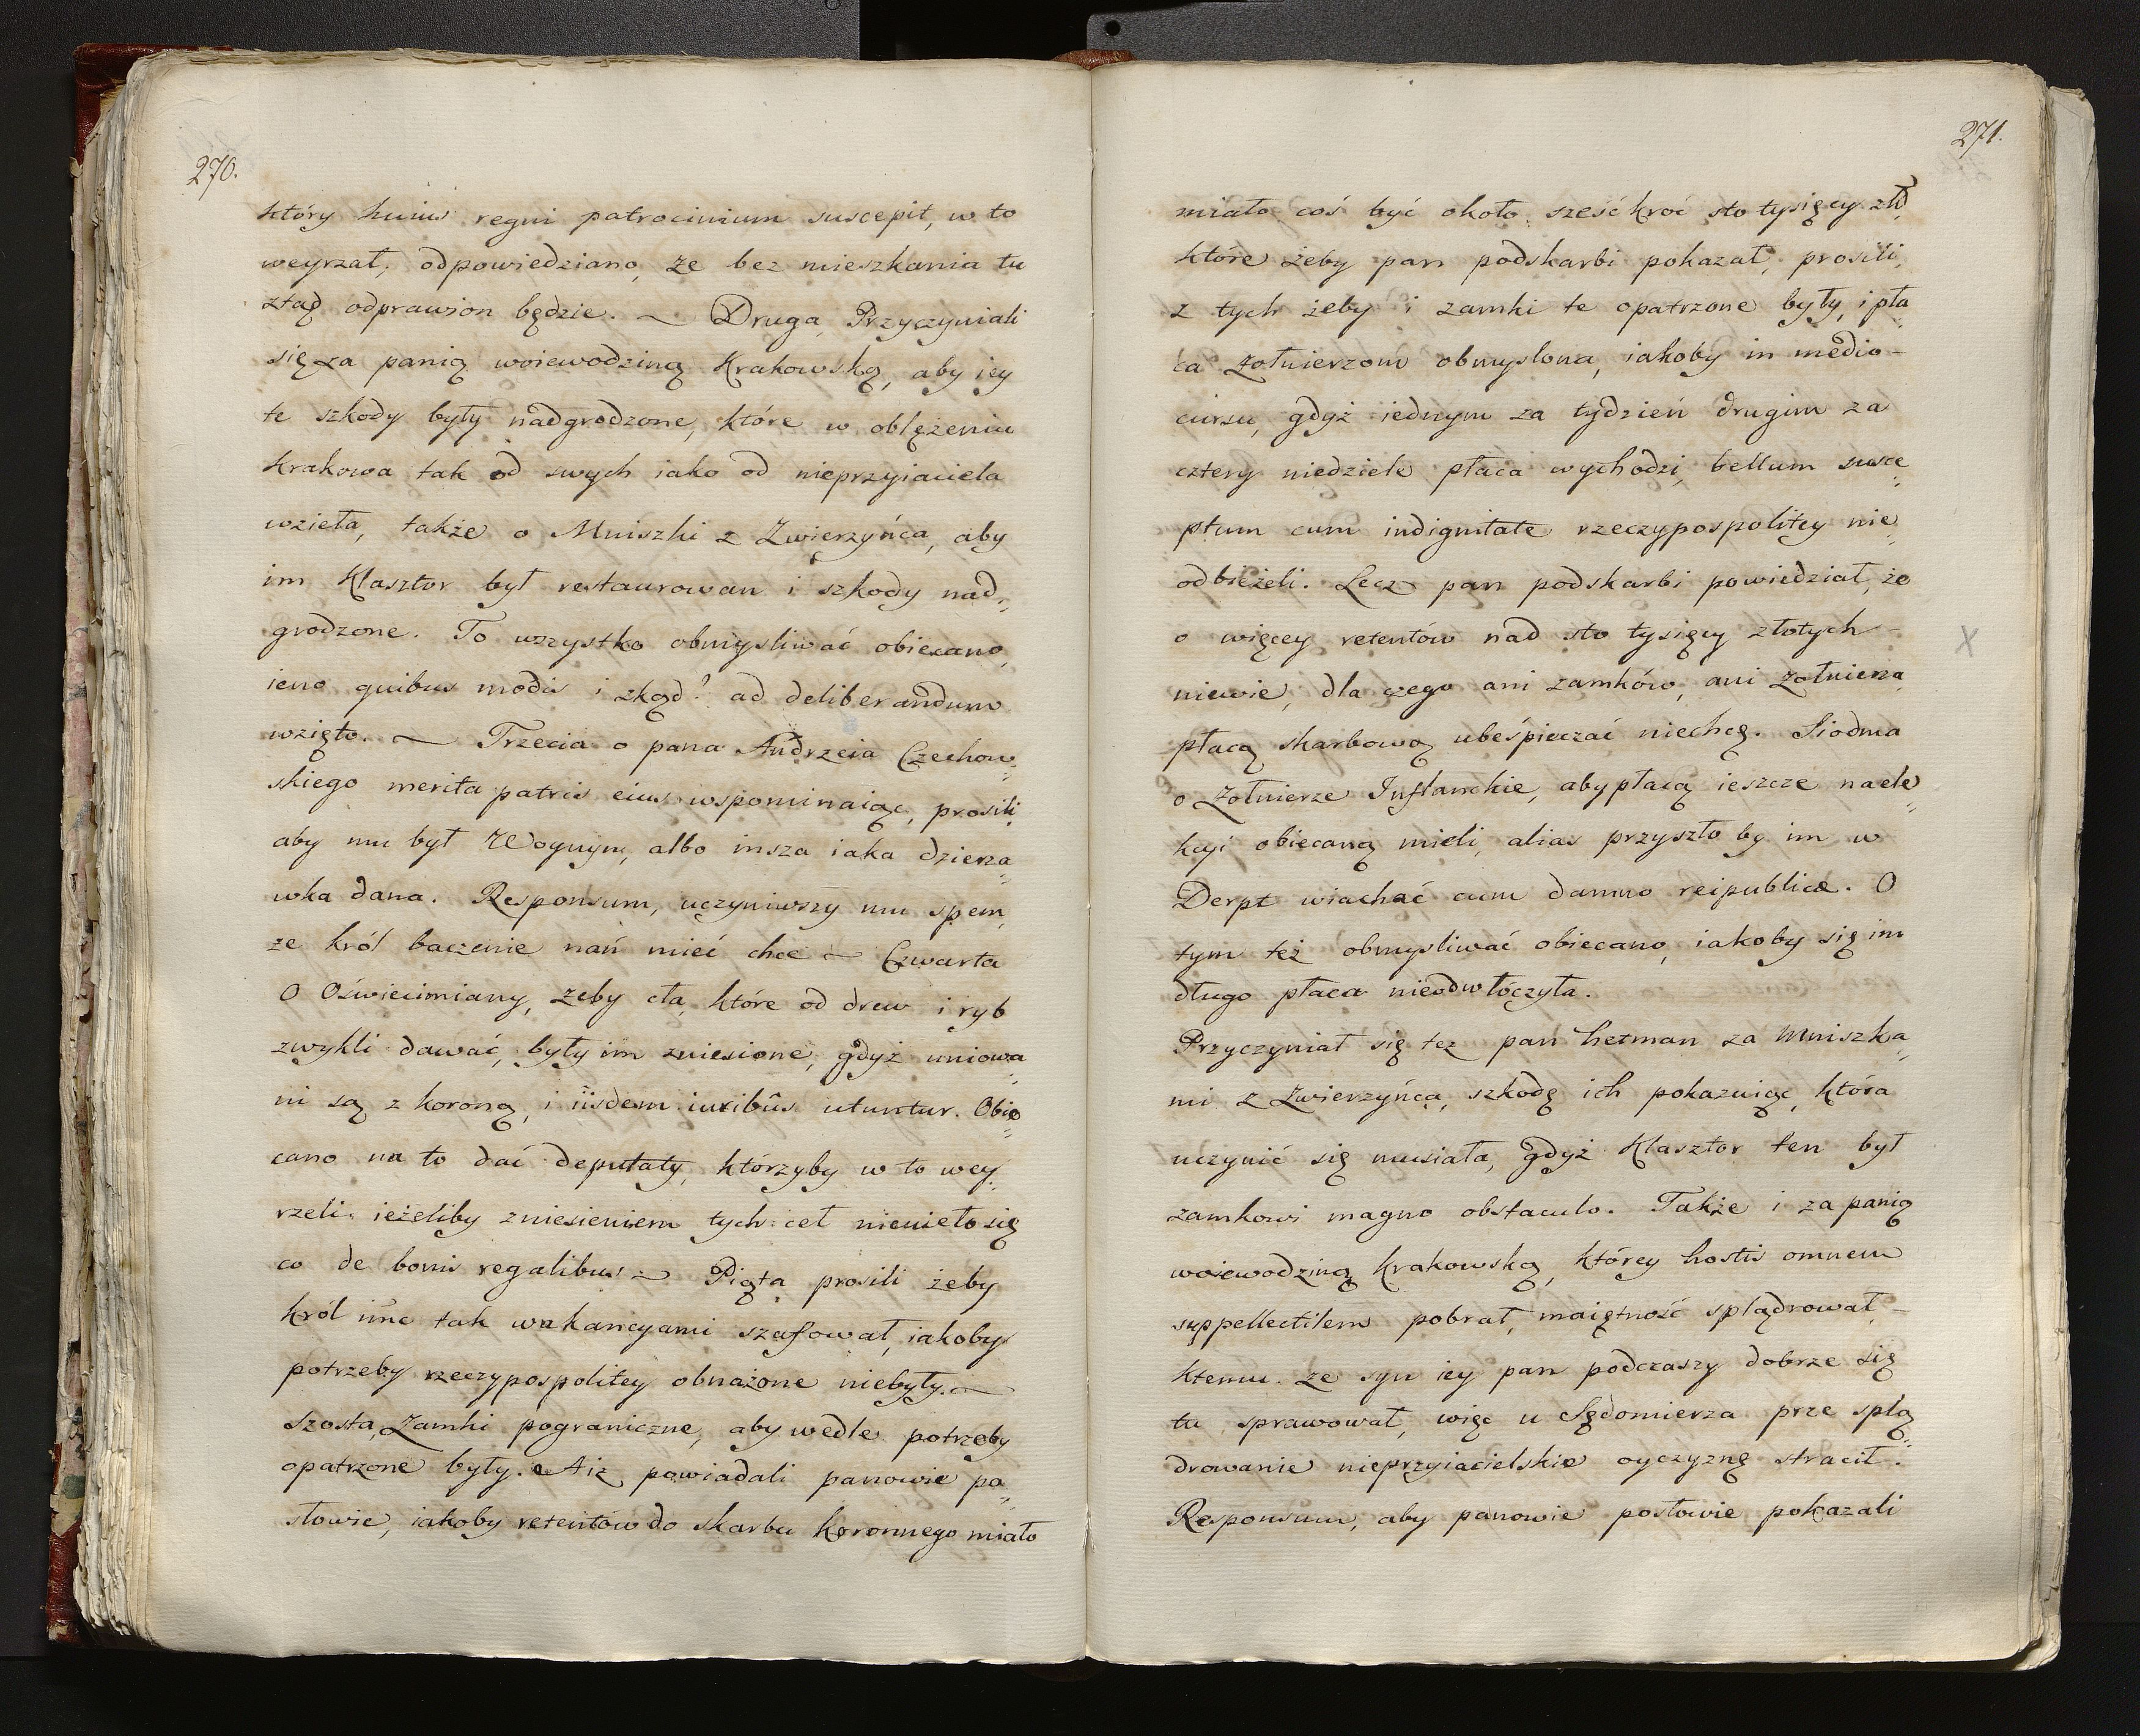 270.
który huius regni patrocinium suscepit, w to
weyrzał, odpowiedziano, że bez mieszkania tu
ztąd odprawion będzie. ~ Druga, Przyczyniali
się za panią woiewodziną Krakowską, aby iey
te szkody były nadgrodzone, które w oblężeniu
Krakowa tak od swych iako od nieprzyiaciela
wzieła, także o Mniszki z Zwierzyńca, aby
im Klasztor był restaurowan i szkody nad„
grodzone. To wszystko obmysliwać obiecano,
ieno quibus modis i zkąd? ad deliberandum
wzięto. ~ Trzecia o pana Andrzeia Czechow„
skiego merita patris eius wspominaiąc, prosili
aby mu był Woynym, albo insza iaka dzierza„
wka dana. Responsum, uczyniwszy mu spem,
ze król baczenie nań mieć chce ~ Czwarta
O Oświecimiany, żeby cła, które od drew i ryb
zwykli dawać, były im zniesione, gdyż uniowa„
ni są z koroną, i iisdem iuribus utuntur. Obie„
cano na to dać deputaty, którzyby w to wey„
rzeli. ieżeliby zniesieniem tych ceł nienieło się
co de bonis regalibus ~ Piąta prosili żeby
król imc tak wakancyami szafował, iakoby
potrzeby rzeczypospolitey obnażone niebyły. ~
Szosta, Zamki pograniczne, aby wedle potrzeby
opatrzone były. A iz powiadali panowie po„
słowie, iakoby retentów do skarbu koronnego miało
271.
miało coś być około sześćkroć sto tysięcy złł,
które żeby pan podskarbi pokazał, prosili,
z tych żeby i zamki te opatrzone były, i pła„
ca żołnierzom obmyslona, iakoby in medio-
cursu, gdyż iednym za tydzień drugim za
cztery niedziele płaca wychodzi, bellum susce„
ptum cum indignitate rzeczypospolitey nie„
odbieżeli. Lecz pan podskarbi powiedział, że
o więcey retentów nad sto tysięcy złotych
niewie, dla czego ani zamków, ani żołnierza
płacą skarbową ubeśpieczać niechcę. Siodma
o żołnierze Inflanckie, aby płacą ieszcze na ele„
kcyi obiecaną mieli, alias przyszło by im w
Derpt wiachać cum damno reipublicæ. O
tym też obmysliwać obiecano, iakoby się im
długo płaca nieodwłóczyła.
Przyczyniał się tez pan hetman za Mniszka„
mi z Zwierzyńca, szkodę ich pokazuiąc, która
uczynić się musiała, gdyż Klasztor ten był
zamkowi magno obstaculo. Także i za panią
woiewodziną Krakowską, którey hostis omnem
suppellectilem pobrał, maiętność splądrował,
ktemu. ze syn iey pan podczaszy dobrze się
tu sprawował, więc u Sędomierza prze splą„
drowanie nieprzyiacielskie oyczyznę stracił.
Responsum, aby panowie posłowie pokazali